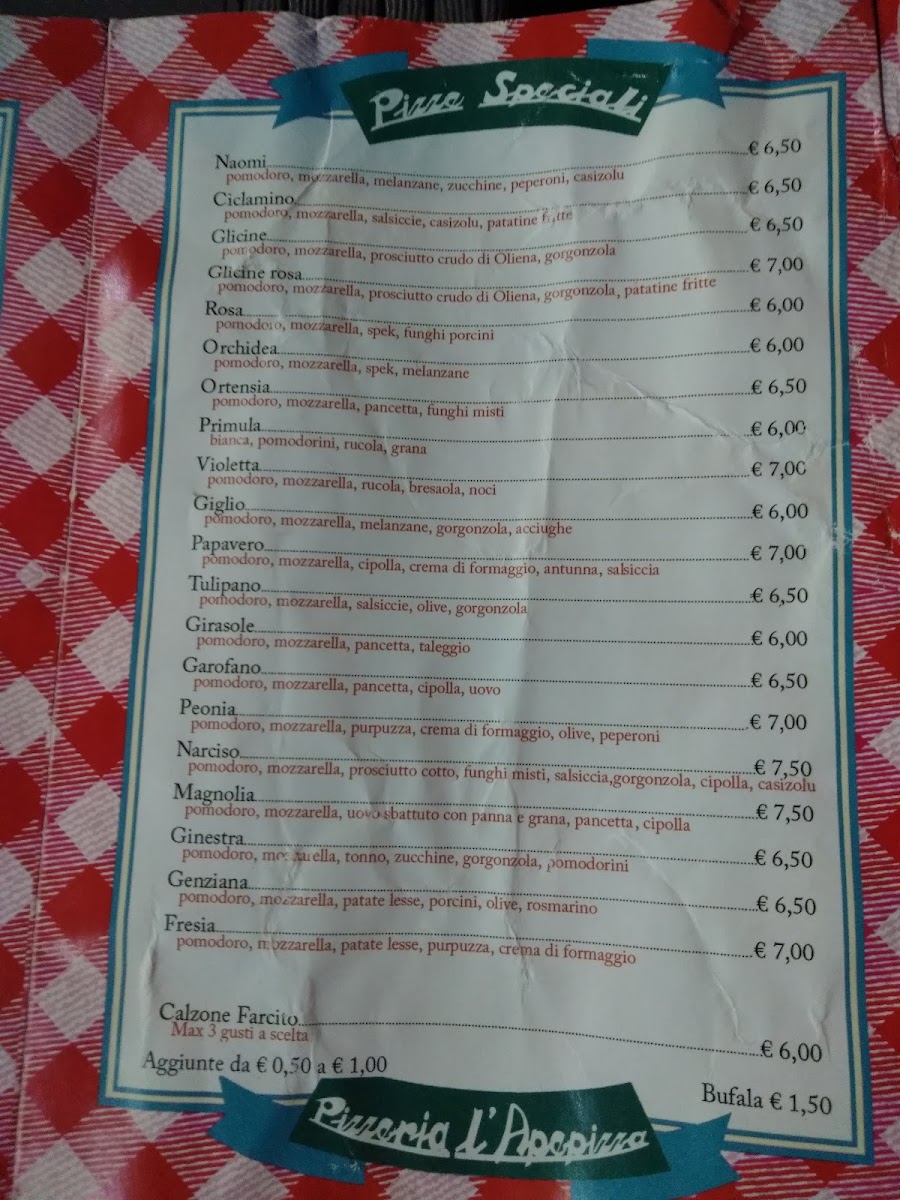 Pizze Speciali
Naomi € 6,50
pomodoro, mozzarella, melanzane, zucchine, peperoni, casizolu
Ciclamino € 6,50
pomodoro, mozzarella, salsiccie, casizolu, patatine fritte
Glicine € 6,50
pomodoro, mozzarella, prosciutto crudo di Oliena, gorgonzola
Glicine rosa € 7,00
pomodoro, mozzarella, prosciutto crudo di Oliena, gorgonzola, patatine fritte
Rosa € 6,00
pomodoro, mozzarella, spek, funghi porcini
Orchidea € 6,00
pomodoro, mozzarella, spek, melanzane
Ortensia € 6,50
pomodoro, mozzarella, pancetta, funghi misti
Primula € 6,00
bianca, pomodorini, rucola, grana
Violetta € 7,00
pomodoro, mozzarella, rucola, bresaola, noci
Giglio € 6,00
pomodoro, mozzarella, melanzane, gorgonzola, acciughe
Papavero € 7,00
pomodoro, mozzarella, cipolla, crema di formaggio, antunna, salsiccia
Tulipano € 6,50
pomodoro, mozzarella, salsiccie, olive, gorgonzola
Girasole € 6,00
pomodoro, mozzarella, pancetta, taleggio
Garofano € 6,50
pomodoro, mozzarella, pancetta, cipolla, uovo
Peonia € 7,00
pomodoro, mozzarella, purpuzza, crema di formaggio, olive, peperoni
Narciso € 7,50
pomodoro, mozzarella, prosciutto cotto, funghi misti, salsiccia,gorgonzola, cipolla, casizolu
Magnolia € 7,50
pomodoro, mozzarella, uovo sbattuto con panna e grana, pancetta, cipolla
Ginestra € 6,50
pomodoro, mozzarella, tonno, zucchine, gorgonzola, pomodorini
Genziana € 6,50
pomodoro, mozzarella, patate lesse, porcini, olive, rosmarino
Fresia € 7,00
pomodoro, mozzarella, patate lesse, purpuzza, crema di formaggio
Calzone Farcito € 6,00
Max 3 gusti a scelta
Aggiunte da € 0,50 a € 1,00
Bufala € 1,50
Pizzeria l'Apepizza